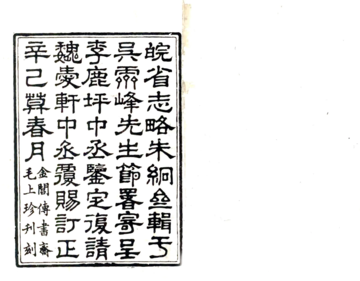 皖省志略朱絧僉輯于
吳霽峰先生節署寄呈
李鹿坪中丞鑒定復請
魏愛軒中丞覆賜訂正
辛已算春月
金閶傳書齋
毛上珍刊刻